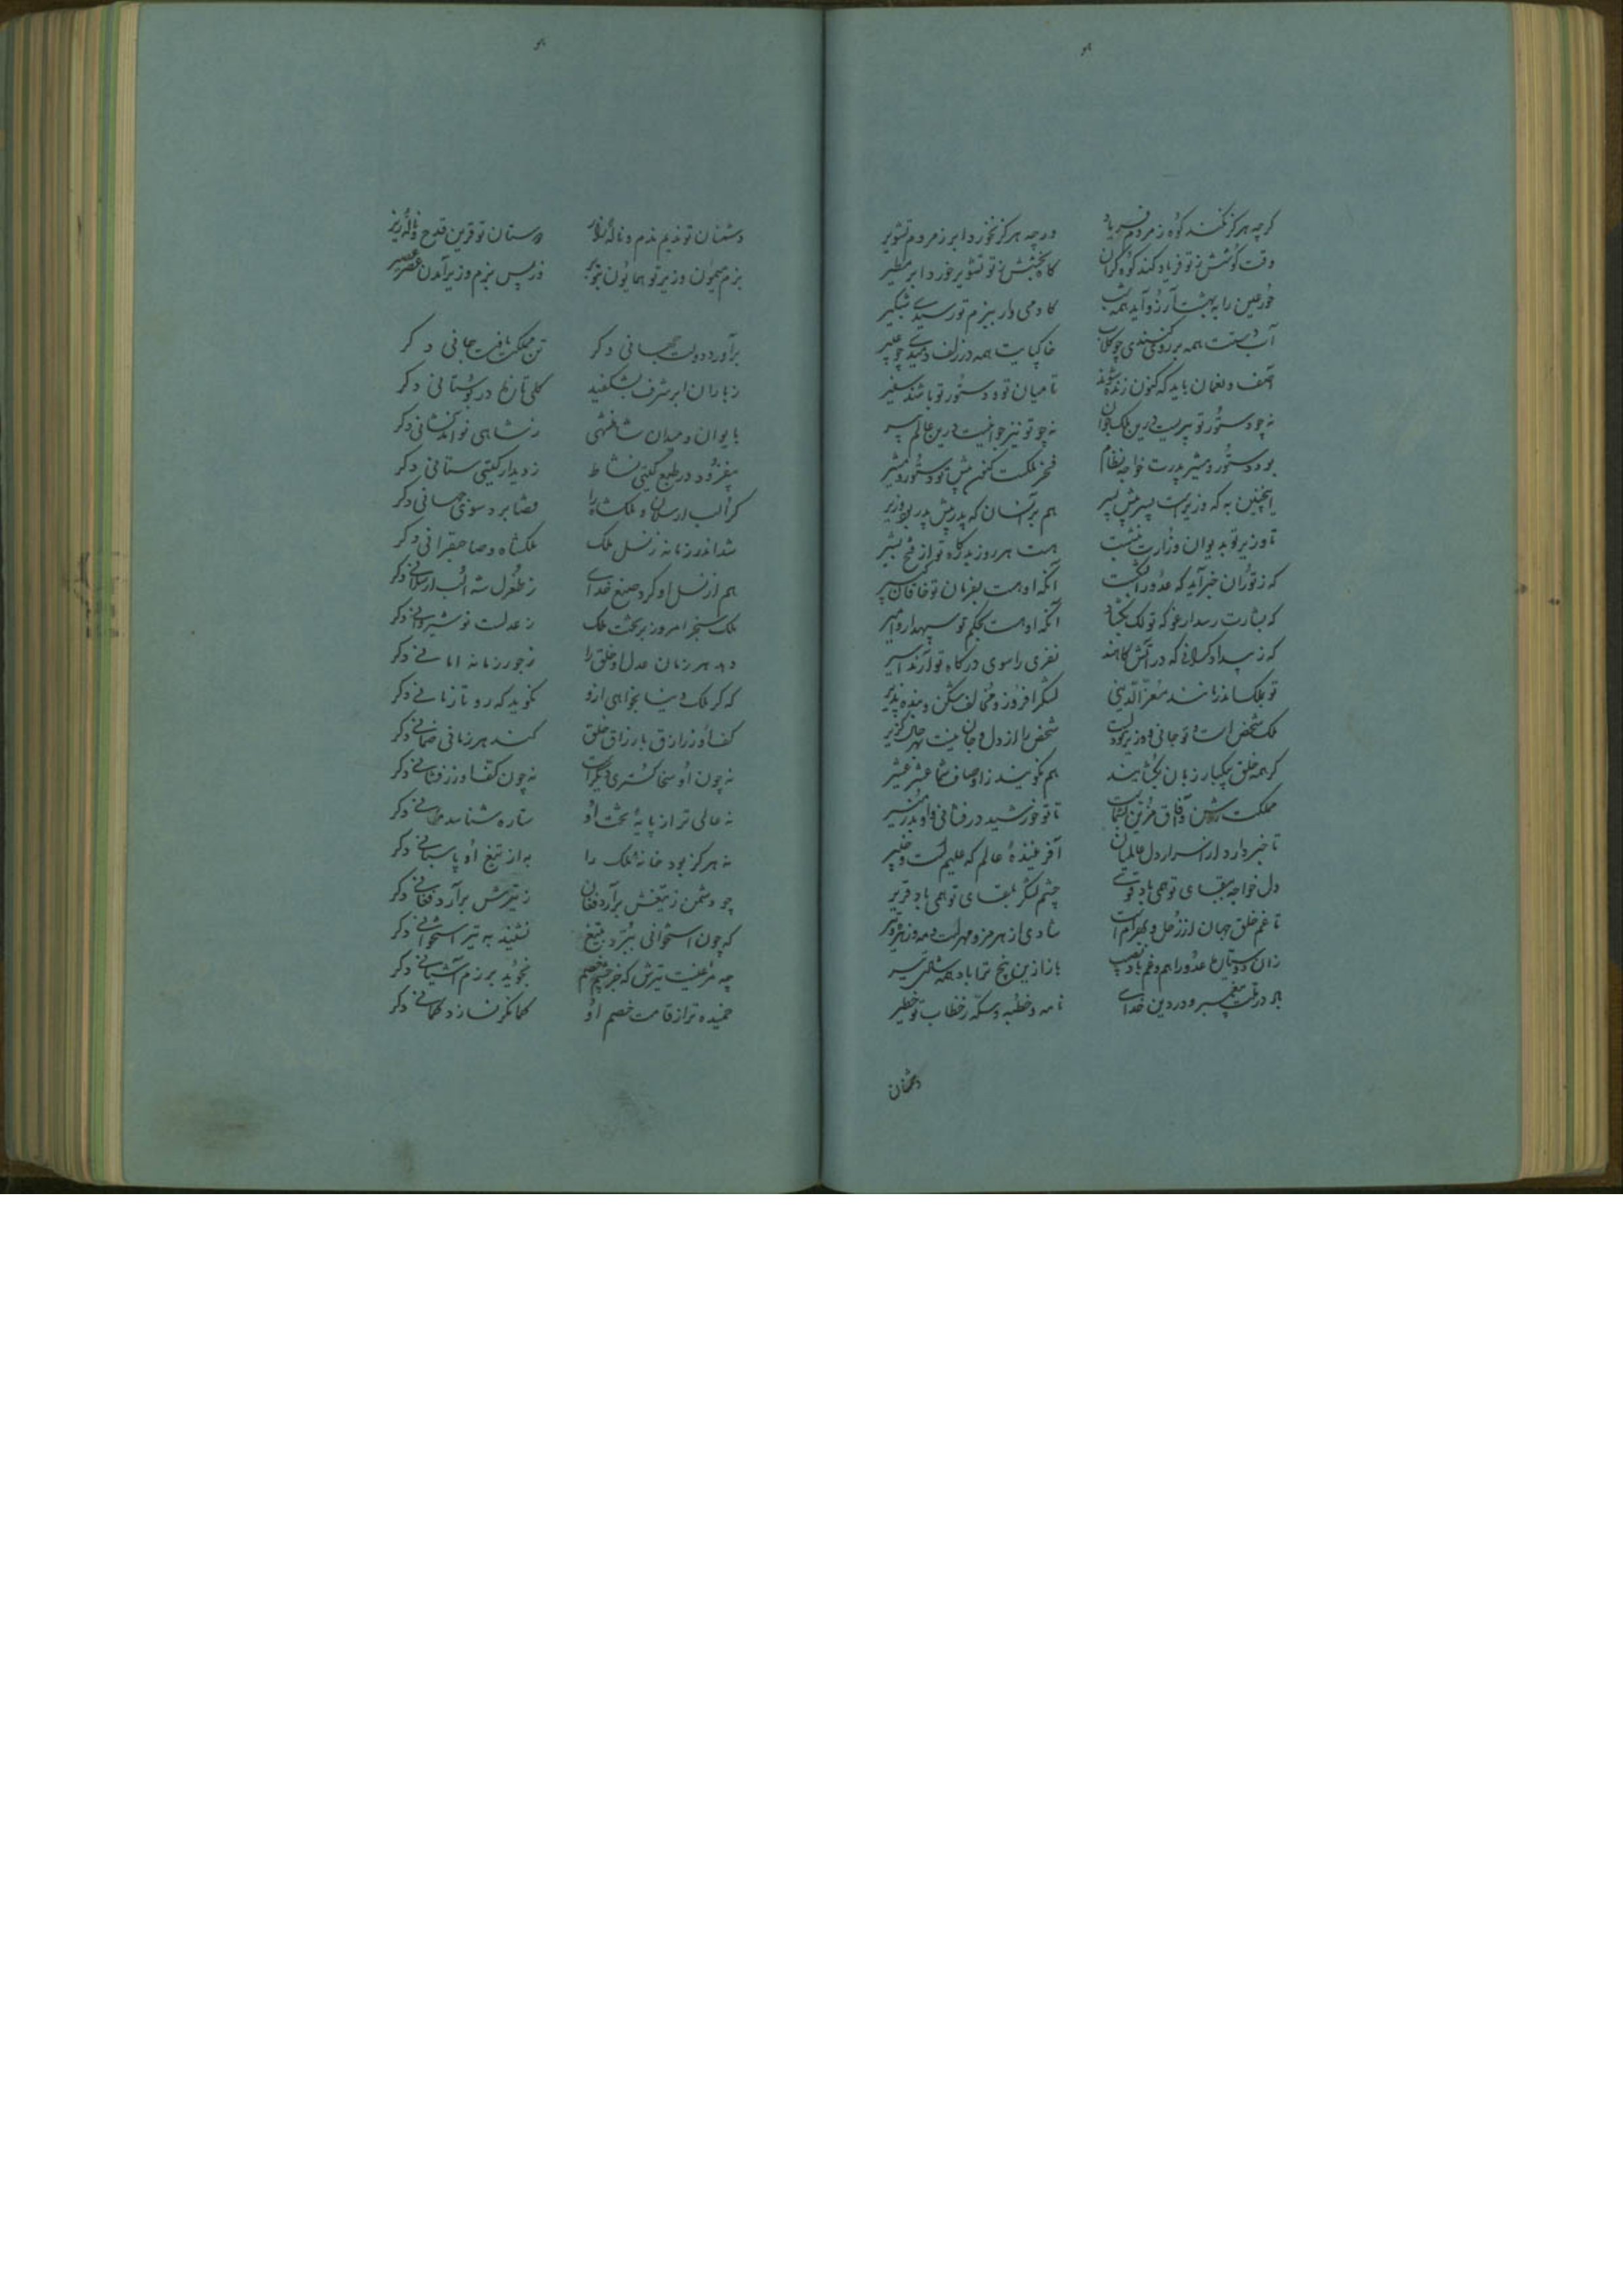 گرچه هرگز نکند کوه ز مردم فریاد ورچه هرگز نخورد ابر ز مردم تشویر
وقت کوشش ز تو فریاد کند کوه گران گاه بخشش ز تو تشویر خورد ابر مطیر
حور عین را به بهشت آرزو آید همه شب کاو می وار ببزم تو رسیدی شبگیر
آب دستت همه بر روی زندی چو گلاب خاکپایت همه در زلف دمیدی چو عبیر
آصف و لقمان باید که کنون زنده شوند تا میان تو و دستور تو باشند سفیر
نه چو دستور تو پیریست درین ملک جوان نه چو تو نیز جوانیست درین عالم پیر
بود دستور و مشیر پدرت خواجه نظام فخر ملکست کنون پیش تو دستور و مشیر
اینچنین به که وزیرست پسر پیش پسر هم بر آنسان که پدر پیش پدر بود وزیر
تا وزیر تو بدیوان وزارت بنشست هست هر روز بدرگاه تو از فتح بشیر
که ز توران خبر آید که عدو را بشکست آنکه او هست بفرمان تو خاقان کبیر
که بشارت رسد از غز که تولک بگشاد آنکه او هست بحکم تو سپهدار و امیر
که ز بیدادگرانی که در آتش کاهند نفری را سوی درگاه تو آرند اسیر
تو بملک اندر مانند معزّ الدّینی لشگر افروز و مخالف شکن و بنده پذیر
ملک شخص است و تو جانی و وزیر تو دلست شخص را از دل و جان نیست بهر حال گزیر
گر همه خلق بیکبار زبان بگشایند هم نگویند ز اوصاف شما عشر عشیر
مملکت روشن و آفاق مزین بشماست تا تو خورشید درفشانی و او بدر منیر
تا خبر دارد از اسرار دل عالمیان آفرینندهٔ عالم که علیم است و خبیر
دل خواجه ببقای تو همی باد قوی چشم لشگر بلقای تو همی باد قریر
تا غم خلق جهان از زحل و بهرام است شادی از هرمز و مهر است و مه و زهره و تیر
زان دو ستاره عدو را هم و غم باد نصیب باز ازین پنج شما باد همه ساله بشیر
در ملت پیغمبر و در دین خدای نامه و خطبه و سکه ز خطاب تو خطیر
دشمنان
دشمنان تو ندیم ندم و نالهٔ زار دوستان تو قرین قدح و نالهٔ زیر
بزم میمون وزیر تو همایون بتو بر وز پس بزم وزیر آمدن عصر عصیر
برآورد دولت جهانی دگر تن مملکت یافت جانی دگر
ز باران ابر شرف بشکفید گلی تازه در بوستانی دگر
بایوان و میدان شاهنشهی ز شاهی نو آمد نشانی دگر
بیفزود در طبع گیتی نشاط ز دیدار گیتی ستانی دگر
گر الب ارسلان و ملکشاه را قضا برد سوی جهانی دگر
شد اندر زمانه ز نسل ملک ملکشاه و صاحبقرانی دگر
هم از نسل او کرد صنع خدای ز طغرل شه الب ارسلانی دگر
ملک سنجر امروز بر تخت ملک ز عدلست نوشیروانی دگر
دهد هر زمان عدل او خلق را ز جور زمانه امانی دگر
که گر ملک دنیا بخواهی ازو نگوید که رو تا زمانی دگر
کف او ز رازق بارزاق خلق کند هر زمانی ضمانی دگر
نه چون او سخا گستری دیگر است نه چون کف او زر فشانی دگر
نه عالی تر از پایهٔ تخت او ستاره شناسد مکانی دگر
نه هرگز بود خانهٔ ملک را به از تیغ او پاسبانی دگر
چو دشمن ز تیغش برآرد فغان ز تیرش برآرد فغانی دگر
که چون استخوانی ببرّد بتیغ نشیند به تیر استخوانی دگر
چه مرغیست تیرش که جز چشم خصم نجوید برزم آشیانی دگر
خمیده تر از قامت خصم او کمانگر نسازد کمانی دگر